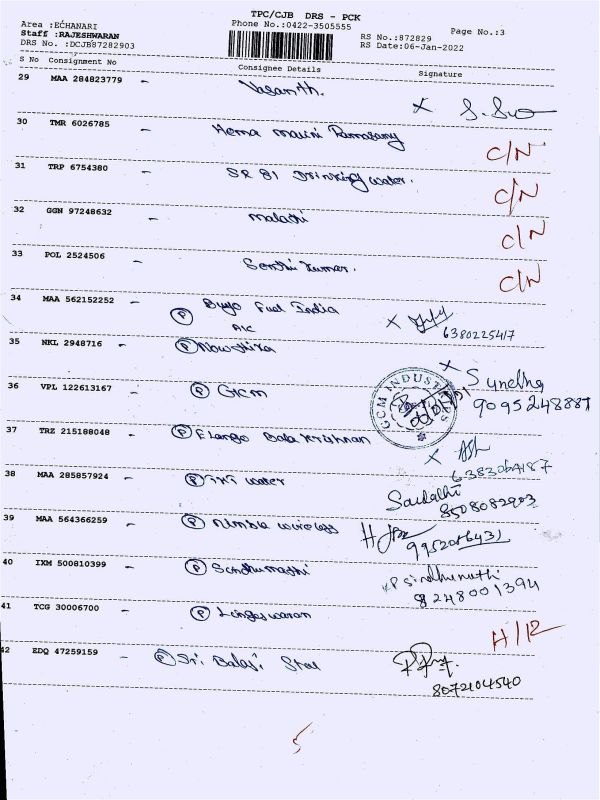 TPC/CJB DRS - PCK
Area :ECHANARI
Phone No.:0422-3505555
Page No.:3
Staff :RAJESHWARAN
RS No.:872829
DRS No. :DCJB87282903
RS Date:06-Jan-2022
S No Consignment No Consignee Details Signature
29 MAA 284823779 - Vasanth.
x
30 TMR 6026785 - Hema mauni Ramasamy
C/N
31 TRP 6754380 - SR 81 Drinking water.
C/N
32 GGN 97248632 - malathi
C/N
33 POL 2524506 - Senthil kumar.
C/N
34 MAA 562152252 - P Buyo Fuel India
A/C
x 6380225417
35 NKL 2948716 - P Nowshira
x Sunetha
36 VPL 122613167 - P GCM
GCM INDUSTRIES
9095248887
37 TRZ 215188048 - P Elango Bala Krishnan
x Ash
6383064187
38 MAA 285857924 - P iri water
8508082903
39 MAA 564366259 - P Nimble wireless
9952086431
40 IXM 500810399 - P Sindhumathi
x P Sindhumathi
8248001394
41 TCG 30006700 - P Lingeswaran
H/R
42 EDQ 47259159 - P Sri Balaji Steel
8072104540
5